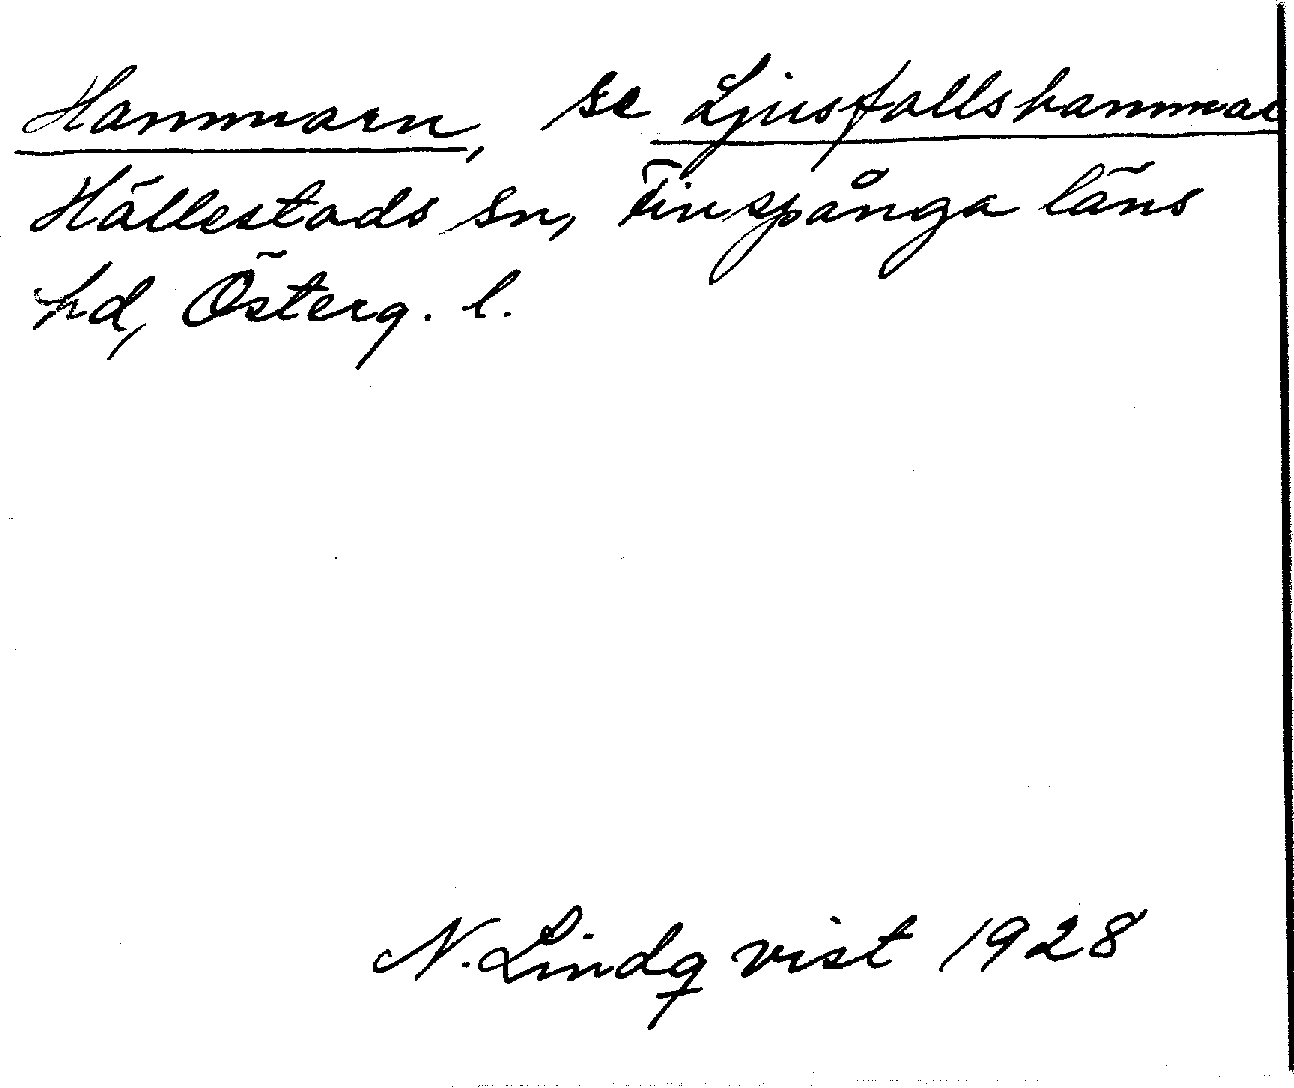 Hammarn, se Ljusfallshammar
Hällestads sn, Finspånga läns
hd, Österg. l.
N. Lindqvist 1928